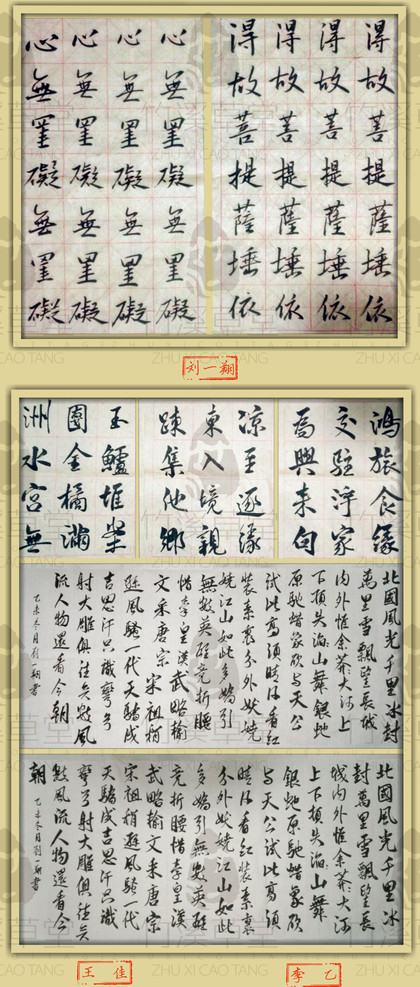 得故菩提薩埵依
得故菩提薩埵依
得故菩提薩埵依
得故菩提薩埵依
心無罣礙無罣礙
心無罣礙無罣礙
心無罣礙無罣礙
心無罣礙無罣礙
刘一翔
鴻旅食緣
交駐浮家
為興来句
凉至逐緣
東入境親
疎集他鄉
玉鱸堆案
團金橘滿
洲水宮無
北國風光千里冰封
萬里雪飄望長城
内外惟余莽大河上
下頓失滔山舞銀蛇
原馳蠟象欲與天公
試比高須晴日看紅
裝素裹分外妖
嬈江山如此多嬌引
無數英雄競折腰
惜秦皇漢武略輸
文采唐宗宋祖稍
遜風騷一代天驕成
吉思汗只識彎弓
射大雕俱往矣數風
流人物還看今朝
乙未冬月劉一翔書
北國風光千里冰
封萬里雪飄望長
城内外惟余莽大河
上下頓失滔山舞
銀蛇原馳蠟象欲
與天公試比高須
晴日看紅裝素裹
分外妖嬈江山如此
多嬌引無數英雄
競折腰惜秦皇漢
武略輸文采唐宗
宋祖稍遜風騷一代
天驕成吉思汗只識
彎弓射大雕俱往矣
數風流人物還看今
朝
乙未冬月劉一翔書
王佳
李乙
竹溪草堂
ZHU XI CAO TANG